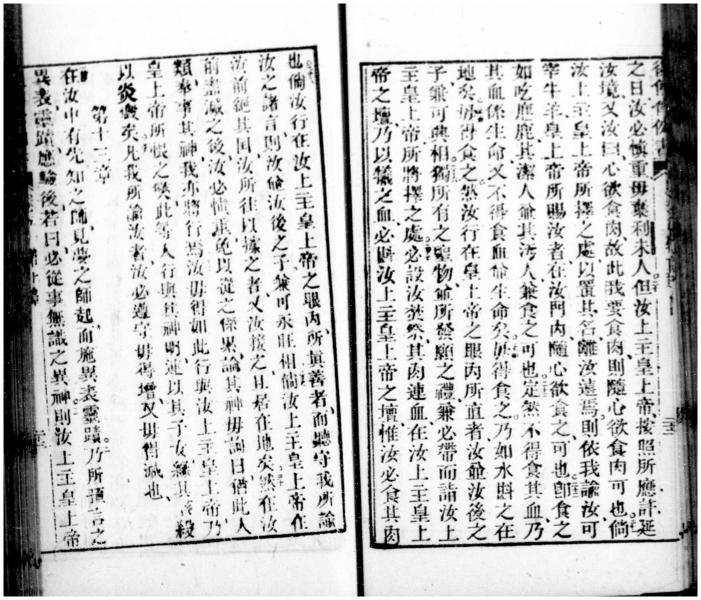 之日汝必慎重毋棄利未人但汝上主皇上帝按照所應許延
汝境又汝曰心欲食肉故此我要食肉則隨心欲食肉可也倘
汝上主皇上帝所擇之處以置其名離汝遠焉則依我諭汝可
宰牛羊皇上帝所賜汝者在汝門內隨心欲食之可也卽食之
如吃麀鹿其潔人兼其污人兼食之可也定然不得食其血乃
其血係生命又不得食血兼生命矣毋得食之乃如水斟之在
地矣毋得食之然汝行在皇上帝之眼內所直者汝並汝後之
子兼可興相獨所有之聖物並所發願之禮兼必帶而詣汝上
主皇上帝所將擇之處必設汝焚祭其肉連血在汝上主皇上
帝之壇乃以犧之血必斟汝上主皇上帝之壇惟汝必食其肉
也倘汝行在汝上主皇上帝之眼內所眞善者而聽守我所諭
汝之諸言則汝並汝後之子兼可永旺相倘汝上主皇上帝在
汝前絕其国汝所往以據之者又汝接之且居在地矣然在汝
前盡滅之後汝必慎重免以從之係累諭其神毋說曰偕此人
類奉事其神我亦將行焉汝毋得如此行與汝上主皇上帝乃
皇上帝所恨之諸此等人行與其神明連以其子女
以炎喪矣凡我所諭汝者汝必遵守毋得增又毋得減也
第十三章
在汝中有先知之師見夢之師起而施異表靈蹟乃所預言之
異表靈蹟應驗後若曰必從事無識之異神則汝上主皇上帝